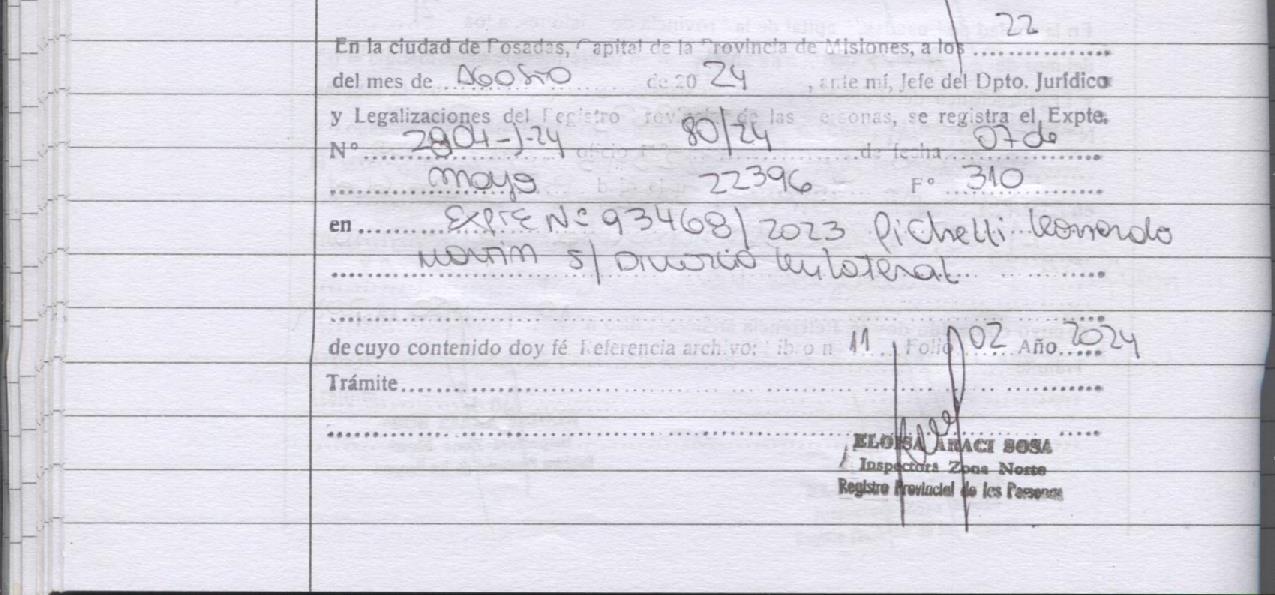 En la ciudad de Posadas, Capital de la Provincia de Misiones, a los 22
del mes de Agosto de 20 24, ante mí, Jefe del Dpto. Jurídico
y Legalizaciones del Registro Provincial de las Personas, se registra el Expte.
N° 2904-J-24 oficio 80/24 de fecha 07 de
mayo 22396 F° 310
en EXPTE Nº 93468/2023 Pichelli Leonardo
Martin S/ Divorcio Unilateral
de cuyo contenido doy fé Referencia archivo: Libro n 11 Folio 02 Año 2024
Trámite
ELOISA ARACI SOSA
Inspectora Zona Norte
Registro Provincial de las Personas